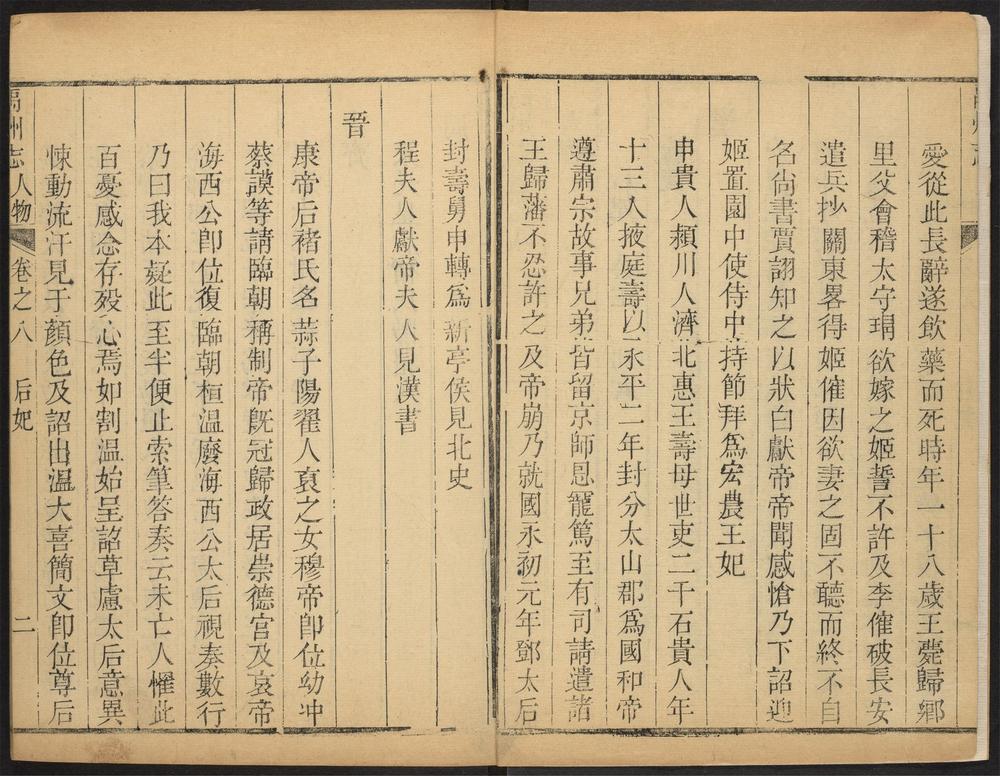 愛從此長辭遂飲藥而死時年一十八歲王薨歸鄉
里父會稽太守瑻欲嫁之姬誓不許及李傕破長安
遣兵抄關東畧得姬傕因欲妻之固不聽而終不自
名尙書賈詡知之以狀白獻帝帝聞感愴乃下詔迎
姬置園中使侍中持節拜爲宏農王妃
申貴人潁川人濟北惠王壽母世吏二千石貴人年
十三入掖庭壽以永平二年封分太山郡爲國和帝
遵肅宗故事兄弟皆留京師恩寵篤至有司請遣諸
王歸藩不忍許之及帝崩乃就國永初元年鄧太后
封壽舅申轉爲新亭侯見北史
程夫人獻帝夫人見漢書
晉
康帝后褚氏名蒜子陽翟人裒之女穆帝卽位幼冲
蔡謨等請臨朝稱制帝旣冠歸政居崇德宮及哀帝
海西公卽位復臨朝桓溫廢海西公太后視奏數行
乃曰我本疑此至半便止索筆答奏云未亡人懼此
百憂感念存歿心焉如割溫始呈詔草慮太后意異
悚動流汗見于顏色及詔出溫大喜簡文卽位尊后
禹州志人物 卷之八 后妃 二